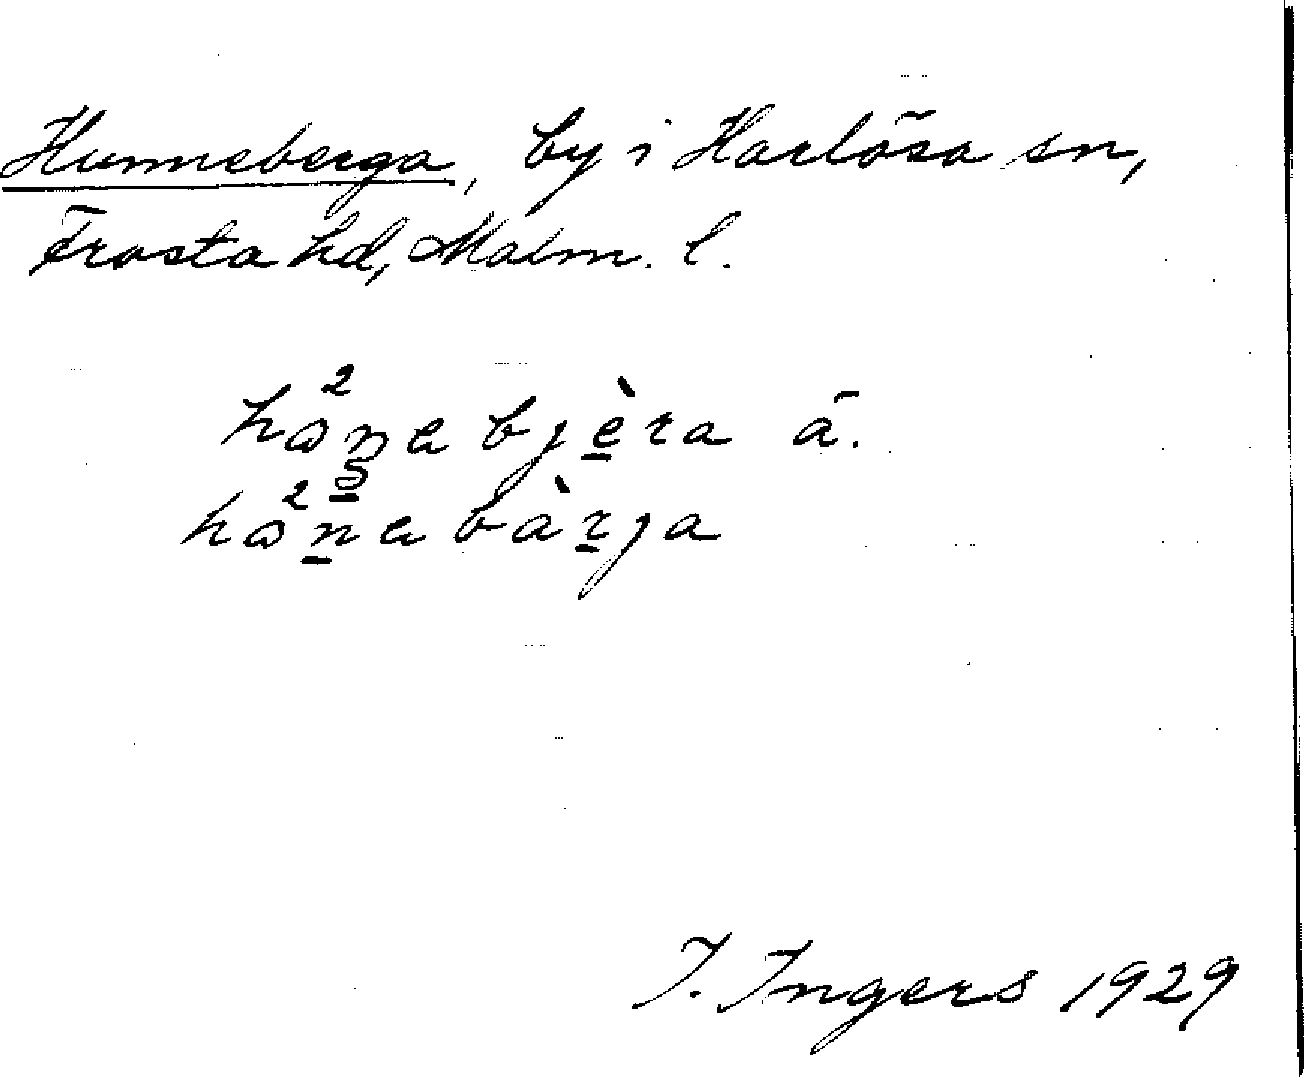 Hunneberga, by i Harlösa sn,
Frosta hd, Malm. l.
hω²n̲a bjè̲ra ä.
hω²n̲a bàr̲ja
I. Ingers 1929